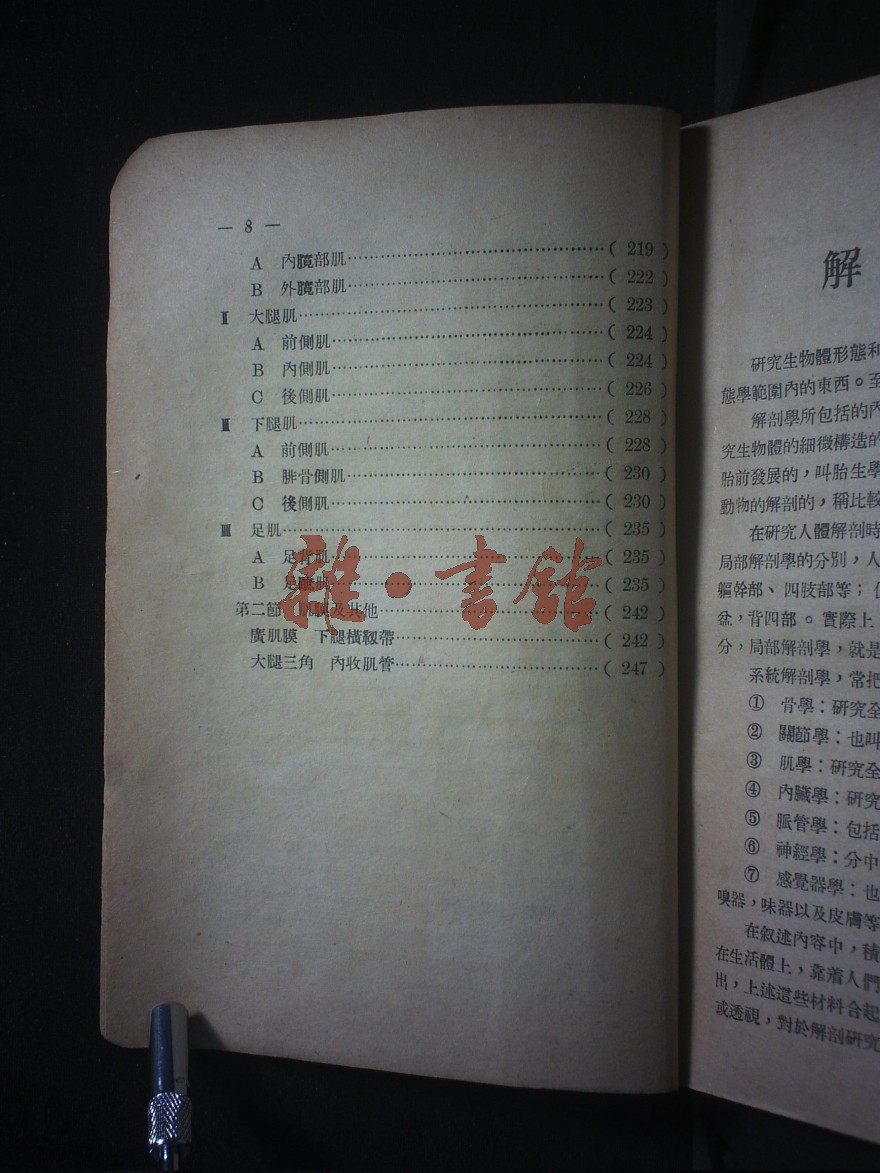 — 8 —
A 內臗部肌……………………………( 219 )
B 外臗部肌……………………………( 222 )
Ⅱ 大腿肌…………………………………( 223 )
A 前側肌………………………………( 224 )
B 內側肌………………………………( 224 )
C 後側肌………………………………( 226 )
Ⅲ 下腿肌…………………………………( 228 )
A 前側肌………………………………( 228 )
B 腓骨側肌……………………………( 230 )
C 後側肌………………………………( 230 )
足肌……………………………………( 235 )
A 足背肌………………………………( 235 )
B 足蹠肌………………………………( 235 )
第二節 肌膜及其他………………………( 242 )
廣肌膜 下腿橫韌帶……………………( 242 )
大腿三角 內收肌管……………………( 247 )
雜·書館
解
研究生物體形態和
態學範圍內的東西。至
解剖學所包括的內
究生物體的細微構造的
胎前發展的，叫胎生學
動物的解剖的，稱比較
在研究人體解剖時
局部解剖學的分別，人
軀幹部、四肢部等；
盆，背四部。實際上
分，局部解剖學，就是
系統解剖學，常把
① 骨學：研究全
② 關節學：也叫
③ 肌學：研究全
④ 內臟學：研究
⑤ 脈管學：包括
⑥ 神經學：分中
⑦ 感覺器學：也
嗅器，味器以及皮膚等
在叙述內容中，積
在生活體上，靠着人們
出，上述這些材料合起
或透視，對於解剖研究